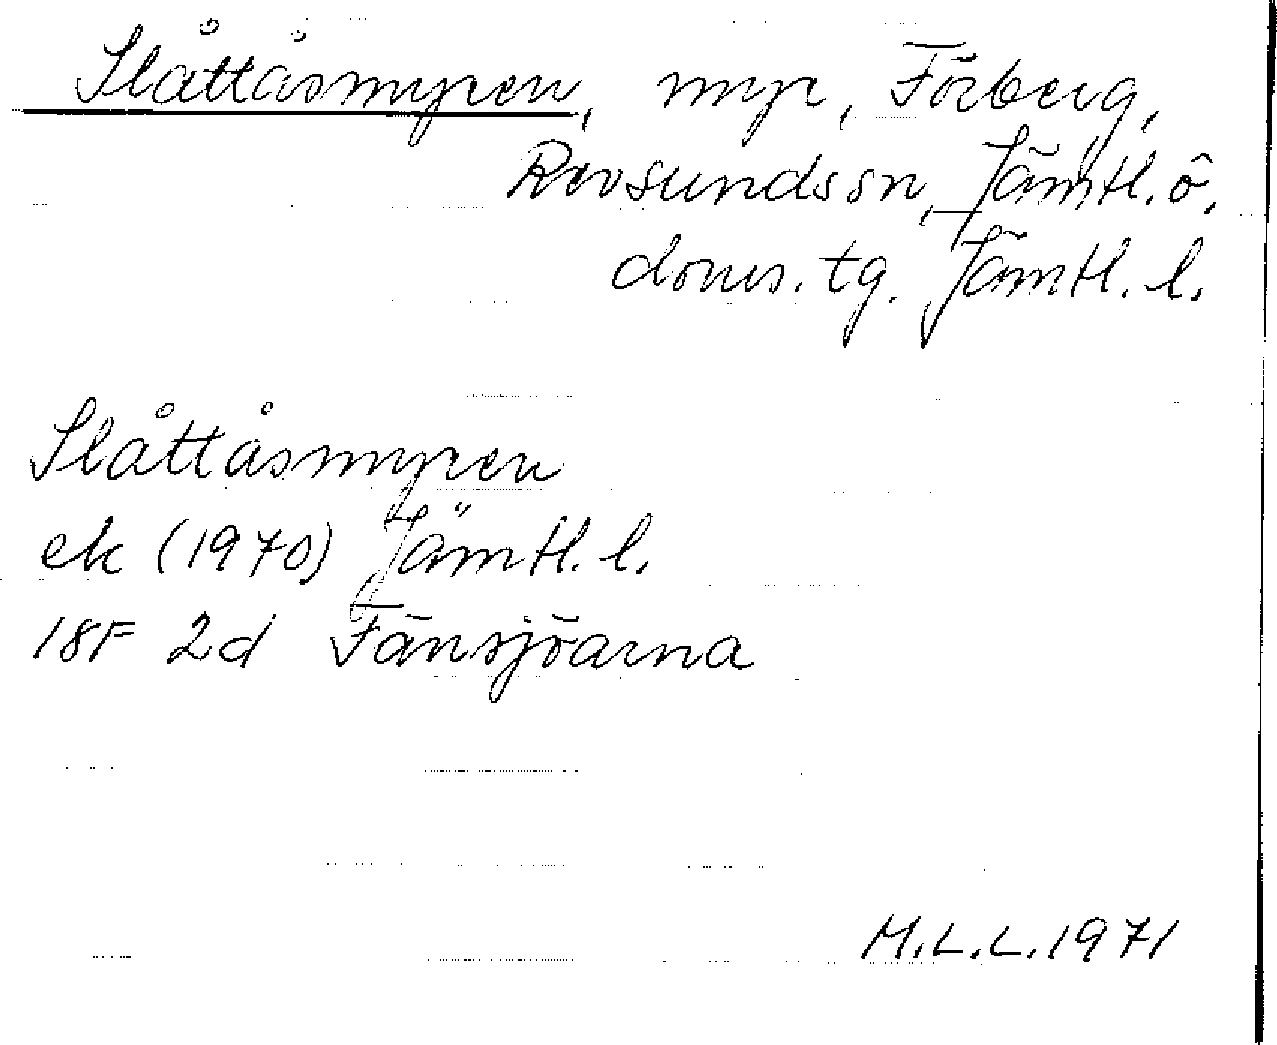 Slåttåsmyren, myr, Förberg,
Revsunds sn, Jämtl. ö.
doms. tg. Jämtl. l.
Slåttåsmyren
ek (1970) Jämtl. l.
18F 2d Fänsjöarna
M.L.L. 1971